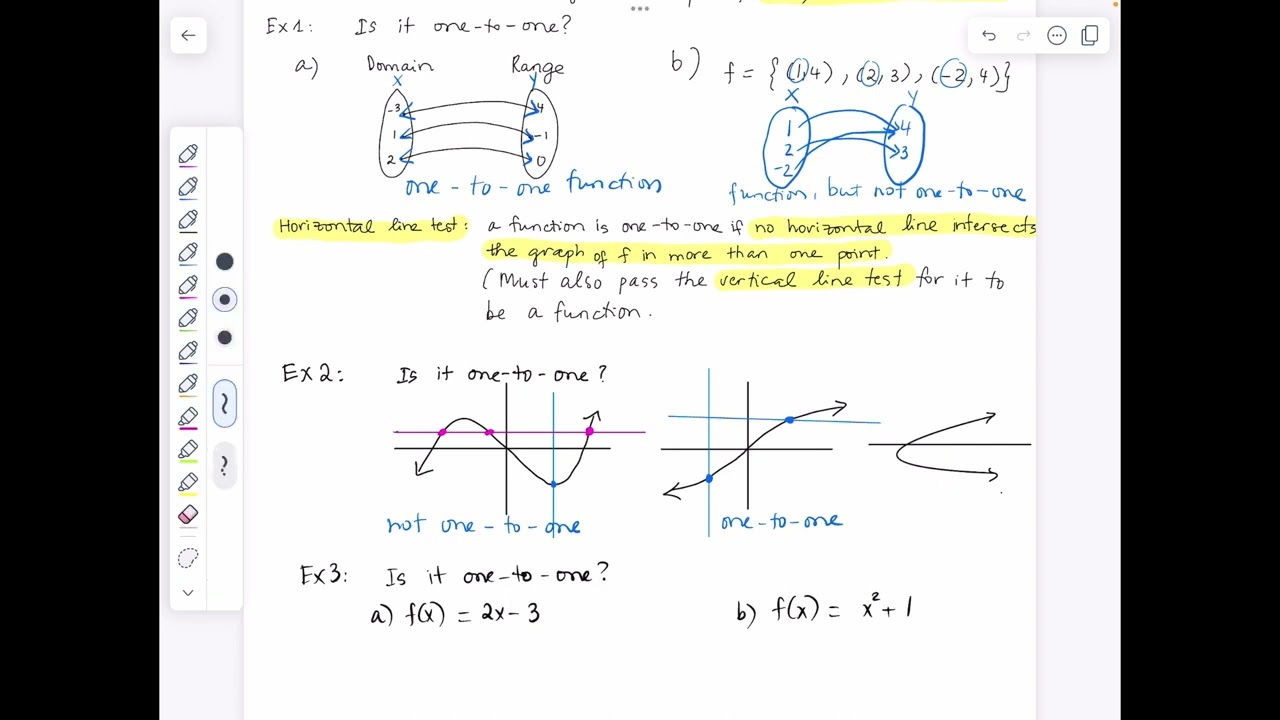 Ex1: Is it one-to-one?
a) Domain Range
x y
-3 4
1 -1
2 0
one-to-one function
b) f = {(1,4), (2,3), (-2,4)}
x y
1 4
2 3
-2
function, but not one-to-one
Horizontal line test: a function is one-to-one if no horizontal line intersects
the graph of f in more than one point.
(Must also pass the vertical line test for it to
be a function.
Ex2: Is it one-to-one?
not one-to-one one-to-one
Ex3: Is it one-to-one?
a) f(x) = 2x-3 b) f(x) = x²+1